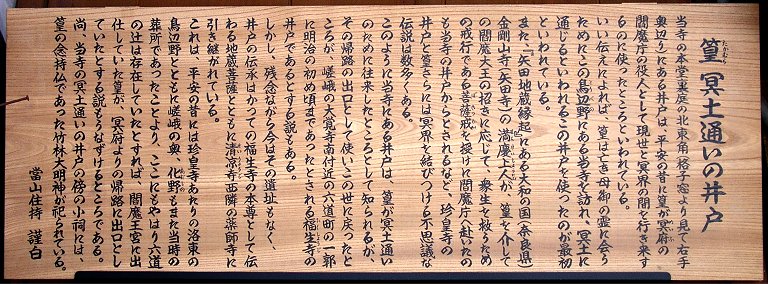 篁 冥土通いの井戸
たかむら
当寺の本堂裏庭の北東角(格子窓より見て右手
奥辺り)にある井戸は、平安の昔に篁が冥府の
閻魔庁の役人として現世と冥界の間を行き来す
るのに使ったところといわれている。
いい伝えによれば、篁は亡き母御の霊に会う
ためにこの鳥辺野にある当寺を訪れ、冥土に
通じるといわれるこの井戸を使ったのが最初
といわれている。
また、「矢田地蔵縁起」にある大和の国(奈良県)
金剛山寺(矢田寺)の満慶上人が、篁を介して
の閻魔大王の招きに応じて、衆生を救うため
の戒行である菩薩戒を授けに閻魔庁へ赴いたの
も当寺の井戸からとされるなど、珍皇寺の
井戸と篁さらには冥界を結びつける不思議な
伝説は数多くある。
このように当寺にある井戸は、篁が冥土通い
のために往来したところとして知られるが、
その帰路の出口として使いこの世に戻ったと
ころが、嵯峨の大覚寺南付近の六道町の一郭
に明治の初め頃まであったとされる福生寺の
井戸であるとする説もある。
しかし、残念ながら今はその遺址もなく、
井戸の伝承はかつての福生寺の本尊として伝
わる地蔵菩薩とともに清凉寺西隣の薬師寺に
引き継がれている。
これは、平安の昔には珍皇寺あたりの洛東の
鳥辺野とともに嵯峨の奥、化野もまた当時の
葬所であったことより、ここにもやはり六道
の辻は存在していたとすれば、閻魔王宮に出
仕していた篁が、冥府よりの帰路に出口とし
ていたとする説もうなずけるところである。
尚、当寺の冥土通いの井戸の傍の小祠には、
篁の念持仏であった竹林大明神が祀られている。
當山住持 謹白